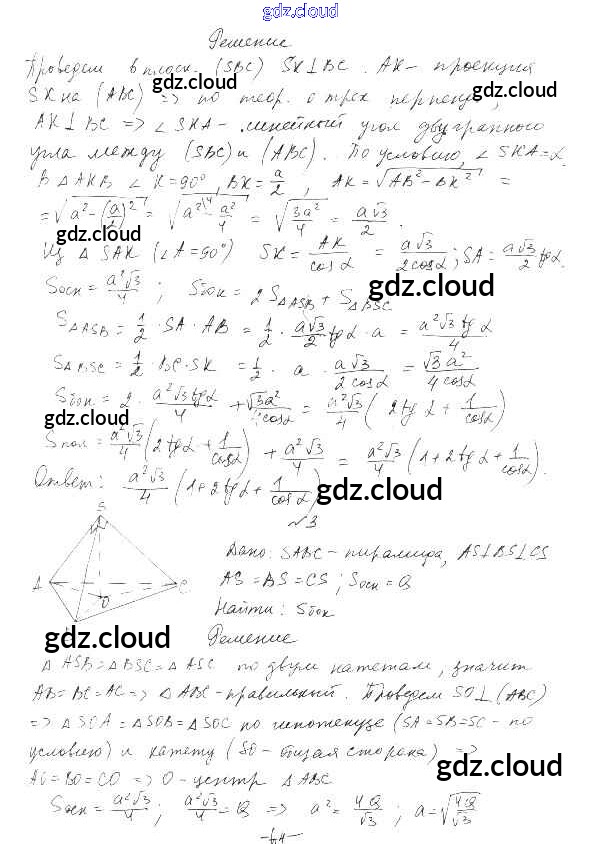 gdz.cloud
Решение
Проведем в плоск. (SBC) SK⊥BC. AK – проекция
gdz.cloud
SK на (ABC) => по теор. о трех перпенд.,
gdz.cloud
AK⊥BC => ∠SKA – линейный угол двугранного
угла между (SBC) и (ABC). По условию, ∠SKA=α.
В △AKB ∠K=90°, BK=a/2, AK=√(AB²-BK²) =
=√(a²-(a/2)²) = √(a²-a²/4) = √(3a²/4) = a√3/2.
gdz.cloud
Из △SAK (∠A=90°) SK = AK/cosα = a√3/(2cosα); SA = a√3/2 tgα.
gdz.cloud
Sосн = a²√3/4; Sбок = 2S△ASB + S△BSC
gdz.cloud
S△ASB = 1/2 · SA · AB = 1/2 · a√3/2 tgα · a = a²√3 tgα/4
S△BSC = 1/2 · BC · SK = 1/2 · a · a√3/(2cosα) = √3a²/(4cosα)
Sбок = 2 · a²√3 tgα/4 + √3a²/(4cosα) = a²√3/4 (2tgα + 1/cosα)
gdz.cloud
Sпол = a²√3/4 (2tgα + 1/cosα) + a²√3/4 = a²√3/4 (1+2tgα + 1/cosα).
Ответ: a²√3/4 (1+2tgα + 1/cosα)
gdz.cloud
№3
S
A
C
O
Дано: SABC – пирамида, AS⊥BS⊥CS
AS = BS = CS; Sосн = Q
Найти: Sбок
gdz.cloud
gdz.cloud
Решение
△ASB = △BSC = △ASC по двум катетам, значит
AB = BC = AC => △ABC – правильный. Проведем SO⊥(ABC)
gdz.cloud
=> △SOA = △SOB = △SOC по гипотенузе (SA=SB=SC – по
условию) и катету (SO – общая сторона) =>
gdz.cloud
AO = BO = CO => O – центр △ABC
Sосн = a²√3/4; a²√3/4 = Q => a² = 4Q/√3; a = √(4Q/√3)